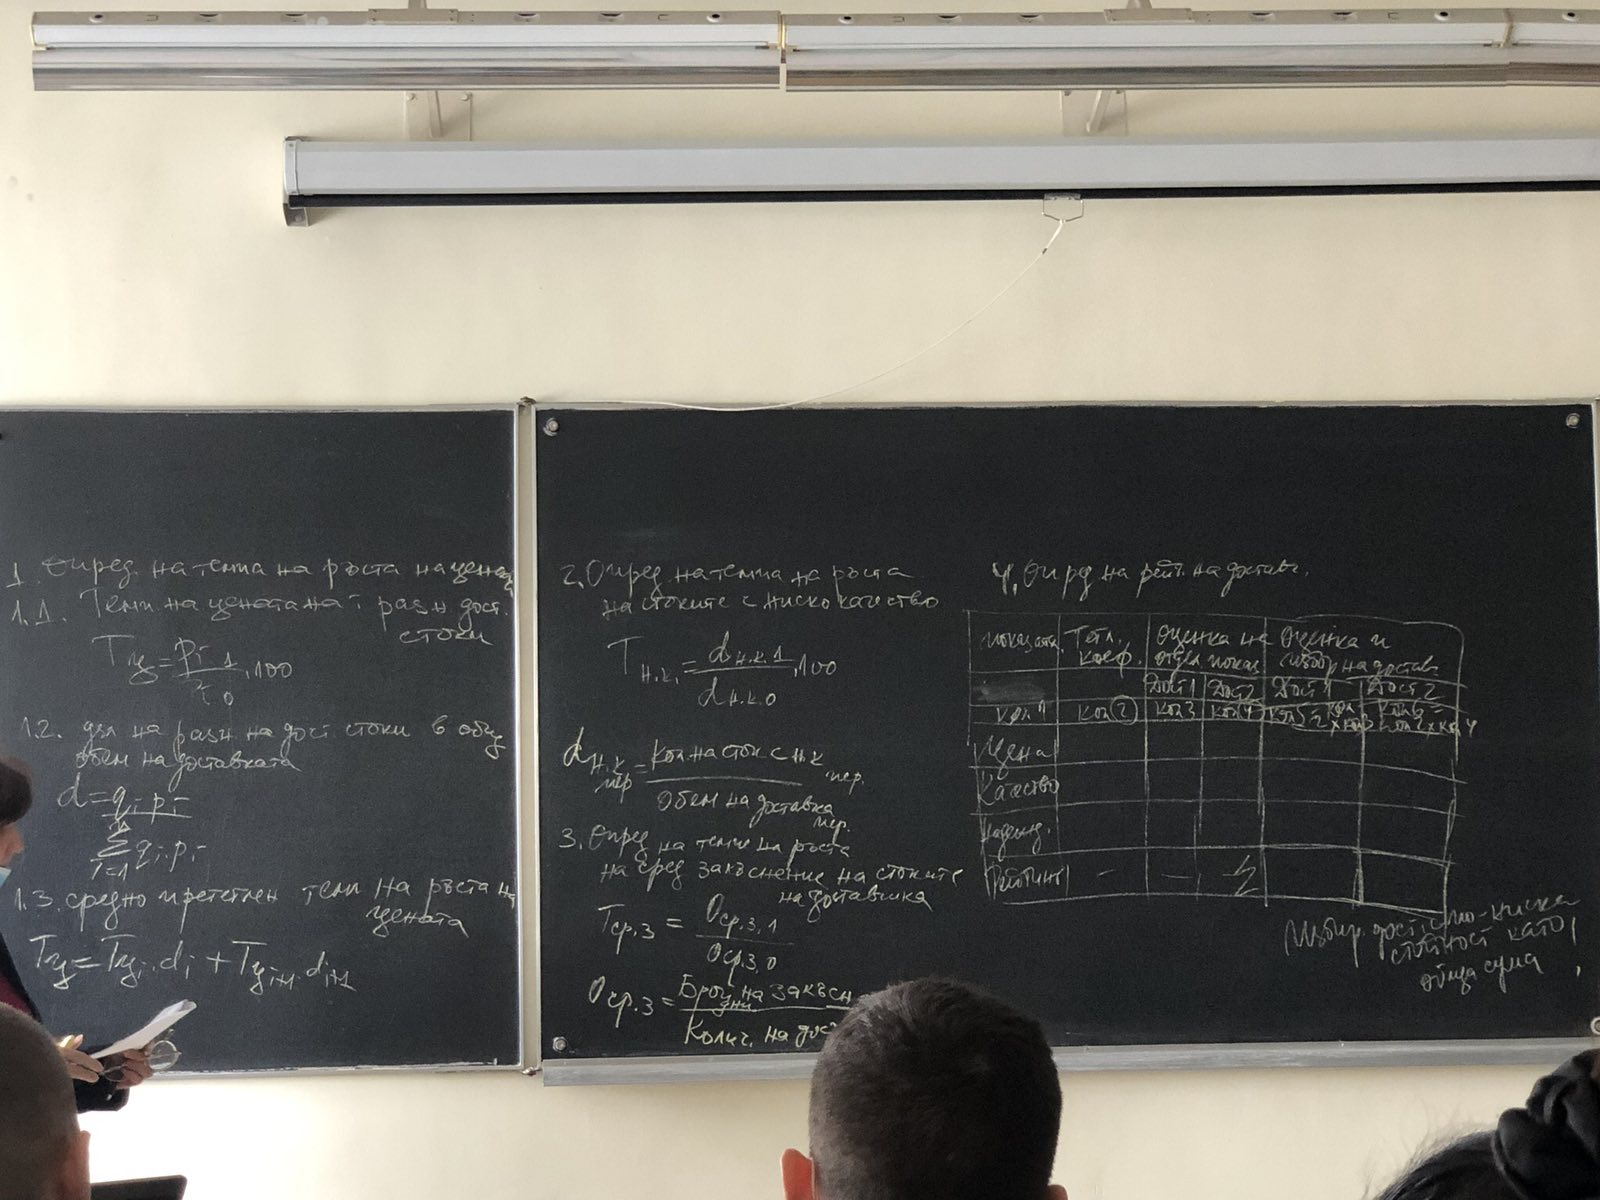 1. Опред. на темпа на ръста на цена
1.1. Темп на цената на i разн дост.
стоки
Tц = pi 1 / 0 .100
1.2. дял на разн на дост стоки в общ
обем на доставката
d = qi.pi
n Σ i=1 qi.pi
1.3. средно претеглен темп на ръста на
цената
Tц = Tцi.di + Tцi+1.di+1
2. Опред на темпа на ръста
на стоките с ниско качество
Tн.к. = dн.к.1 / dн.к.0 .100
dн.к пер = Кол на сток с н.к пер. / Обем на доставка пер.
3. Опред на темпа на ръста
на сред закъснение на стоките
на доставчика
Tср.з = Оср.з,1 / Оср.з,0
Оср.з = Брой на закъсн
дни
Колич. на дост
4. Опред на рейт. на достав.
показат. Тегл. коеф. Оценка на отдел показ Оценка и избор на достав.
Дост 1 Дост 2 Дост 1 Дост. 2
кол 1 кол 2 кол 3 кол 4 кол 5 = кол 2 x кол 3 кол 6 = кол 2 x кол 4
Цена
Качество
надежд.
Рейтинг - -
Избир. дост. с по-ниска
стойност като
обща сума